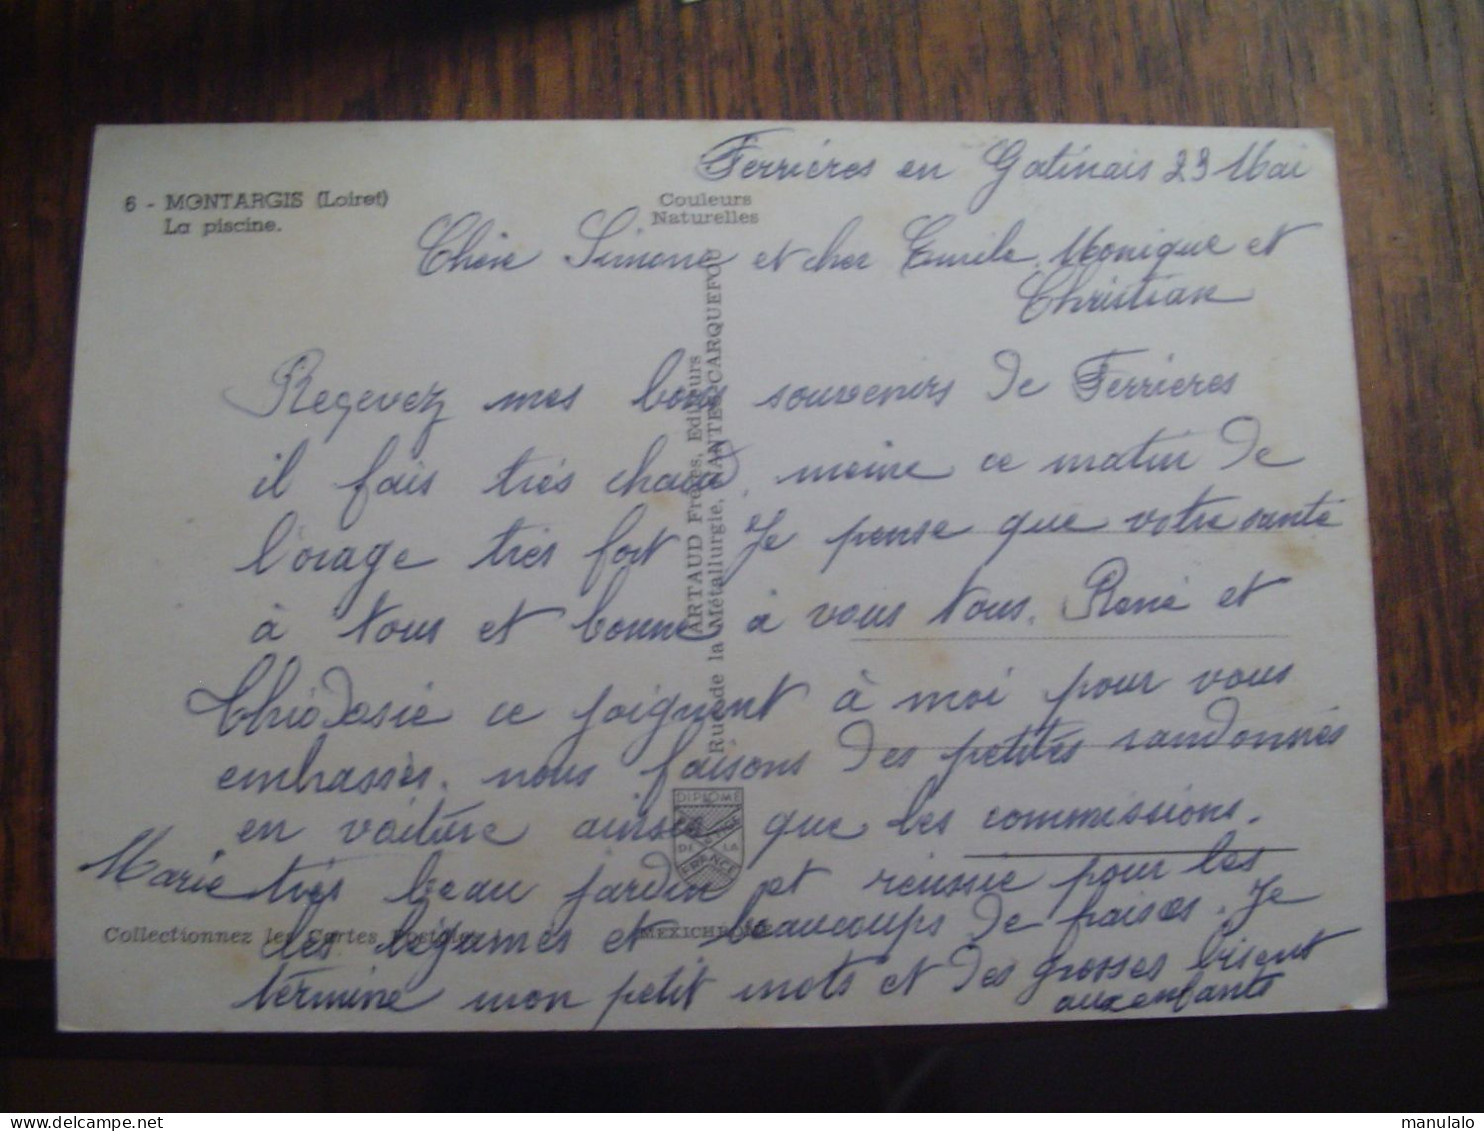 Ferriéres en Gatinais 23 Mai
6 - MONTARGIS (Loiret)
La piscine.
Couleurs
Naturelles
Chère Simone et cher Emile. Monique et
Christian
Reçevez mes bons souvenirs de Ferrieres
il fais très chaud, meme ce matin de
l'orage très fort Je pense que votre santé
à tous et bonne à vous tous. René et
ce joignent à moi pour vous
embrassès. nous faisons des petites randonnés
en voiture ainsi que les commissions.
Marie très beau jardin et réussie pour les
les légumes et beaucoups de fraises. Je
termine mon petit mots et des grosses bisent
aux enfants
ARTAUD Frères, Editeurs
Rue de la Métallurgie, NANTES-CARQUEFOU
DIPLOME
DE LA
FRANCE
Collectionnez les Cartes Postales
MEXICHROME
www.delcampe.net
manulalo